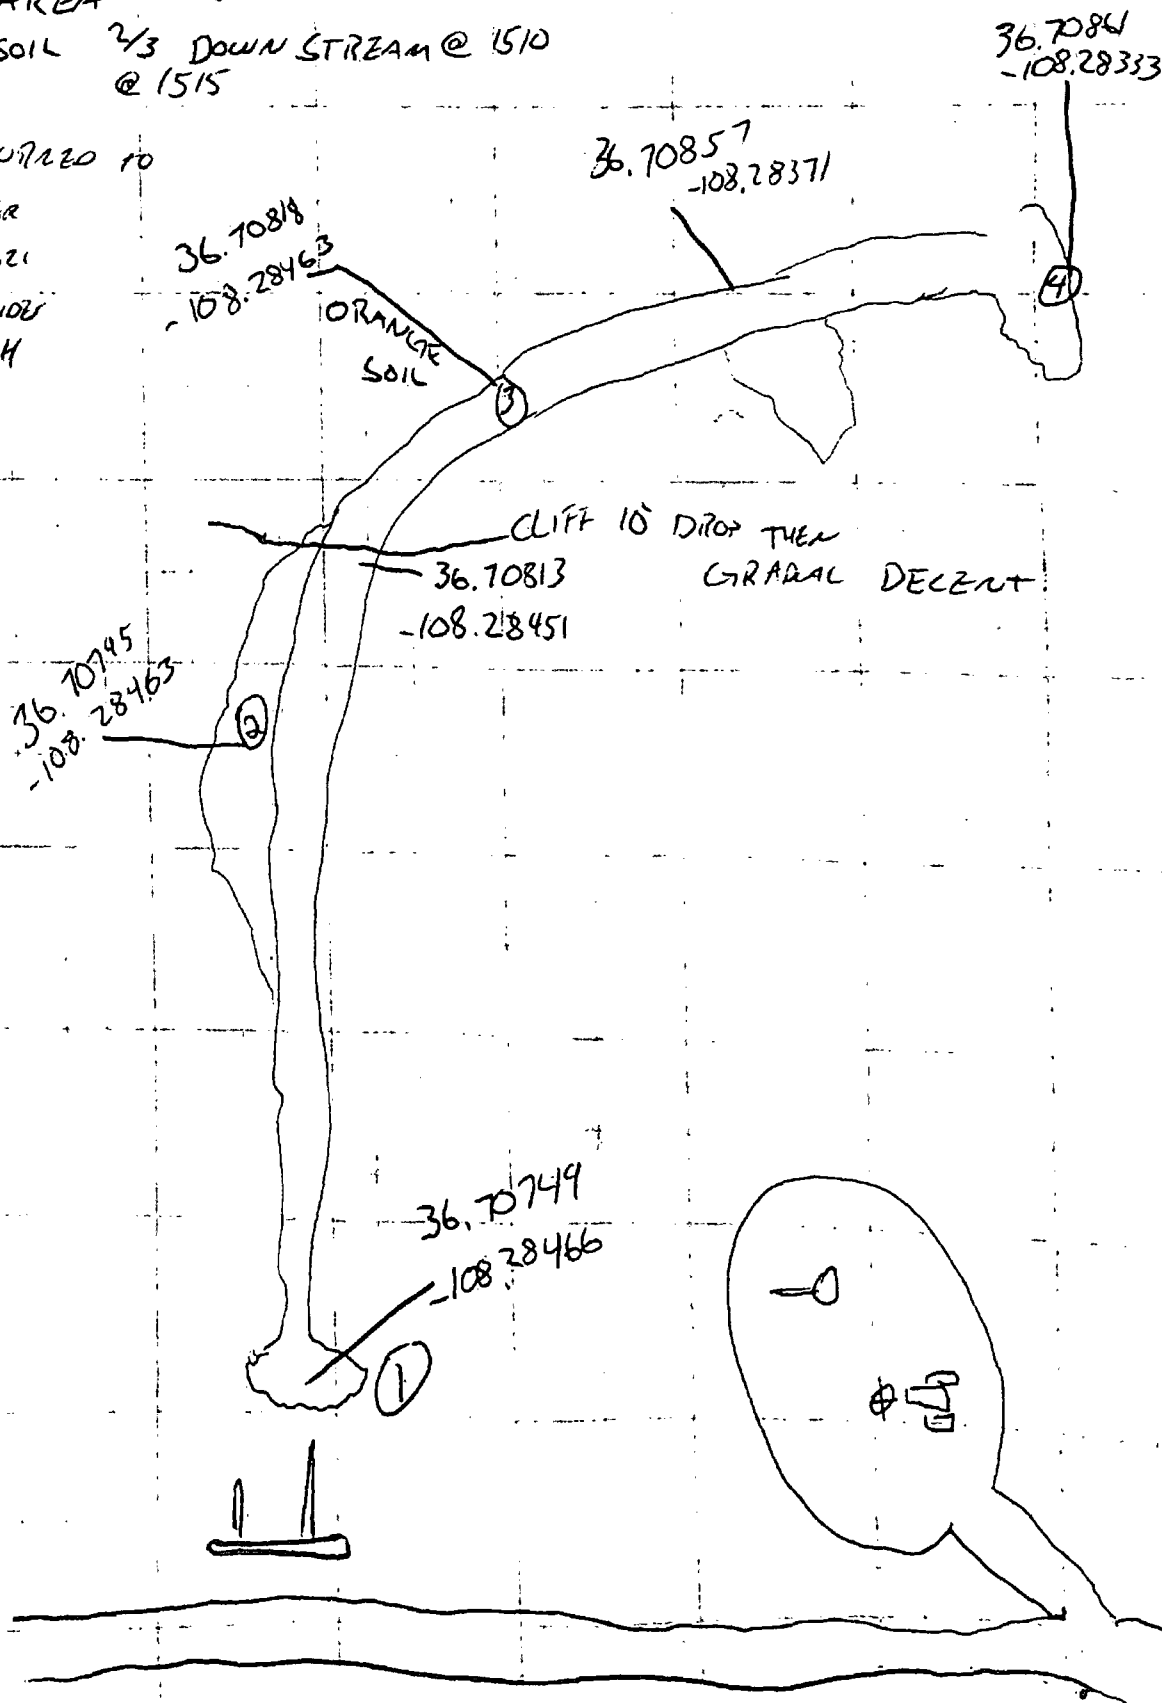 AREA
SOIL 2/3 DOWN STREAM @ 1510
@ 1515
TO
36.70861
-108.28333
36.70857
-108.28371
36.70818
-108.28463
ORANGE
SOIL
4
3
CLIFF 10' DROP THEN
GRADAL DECENT.
36.70813
-108.28451
36.70795
-108.28463
2
36.70749
-108.28466
1